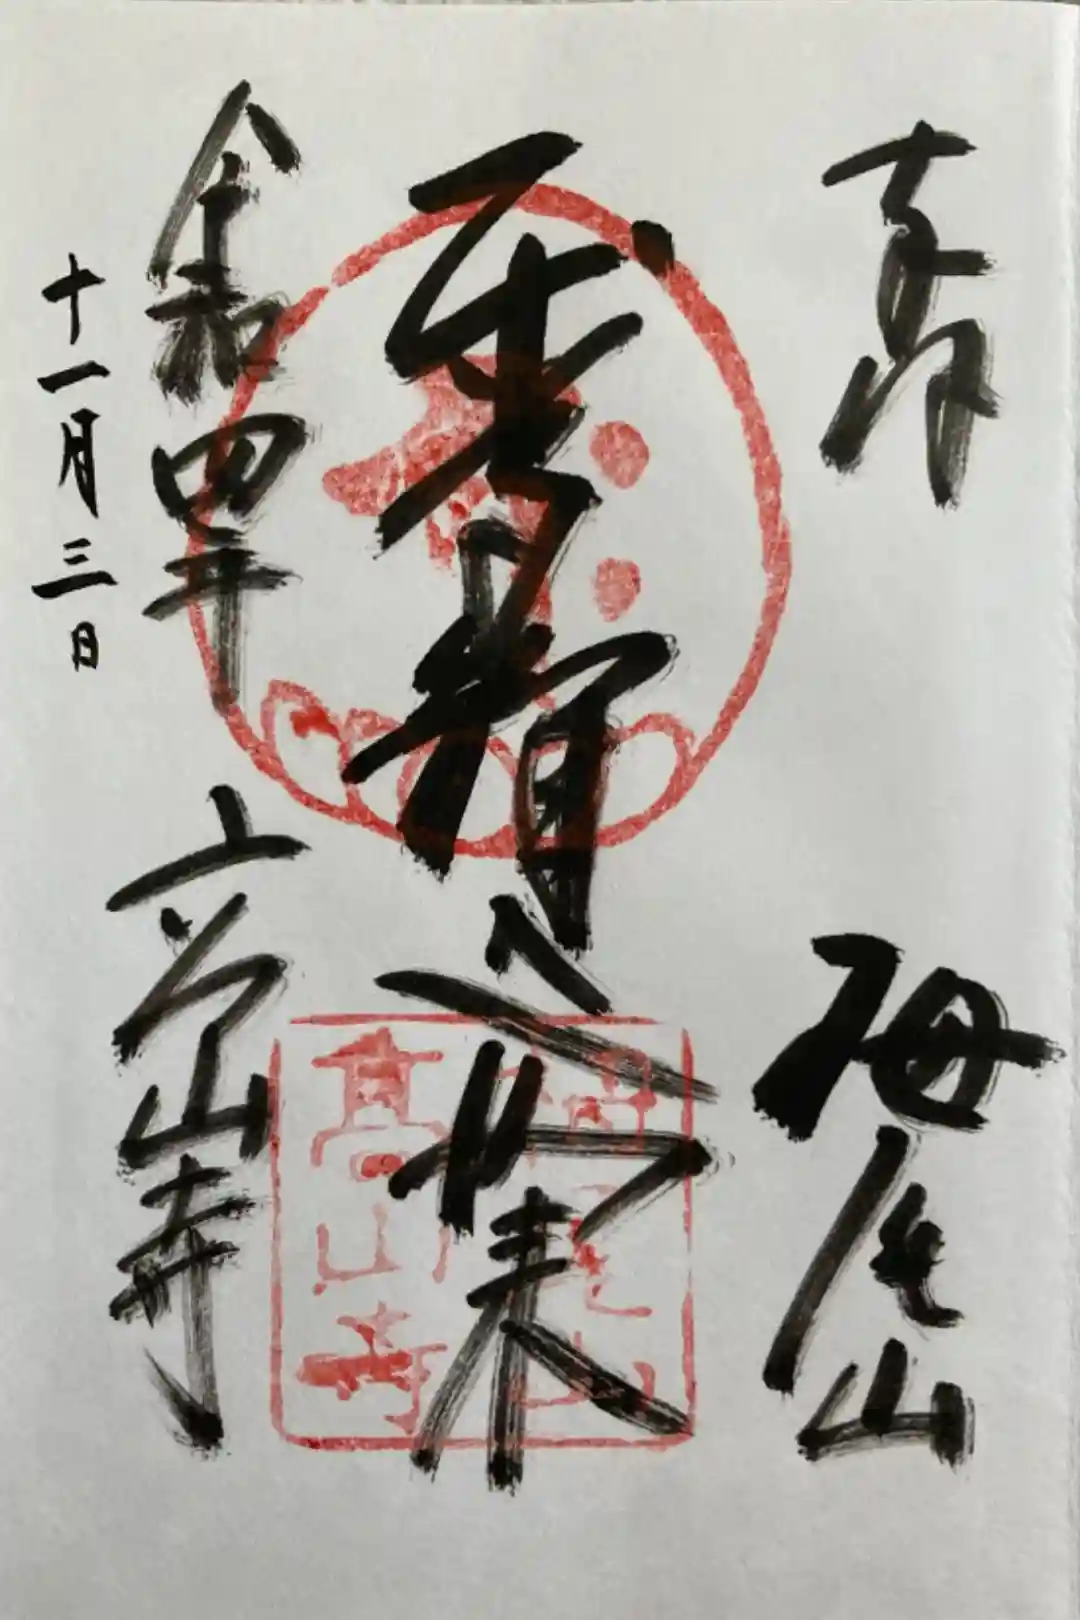 奉拝
栂尾山
如来
令和四年
高山寺
十一月三日
栂尾山
高山寺